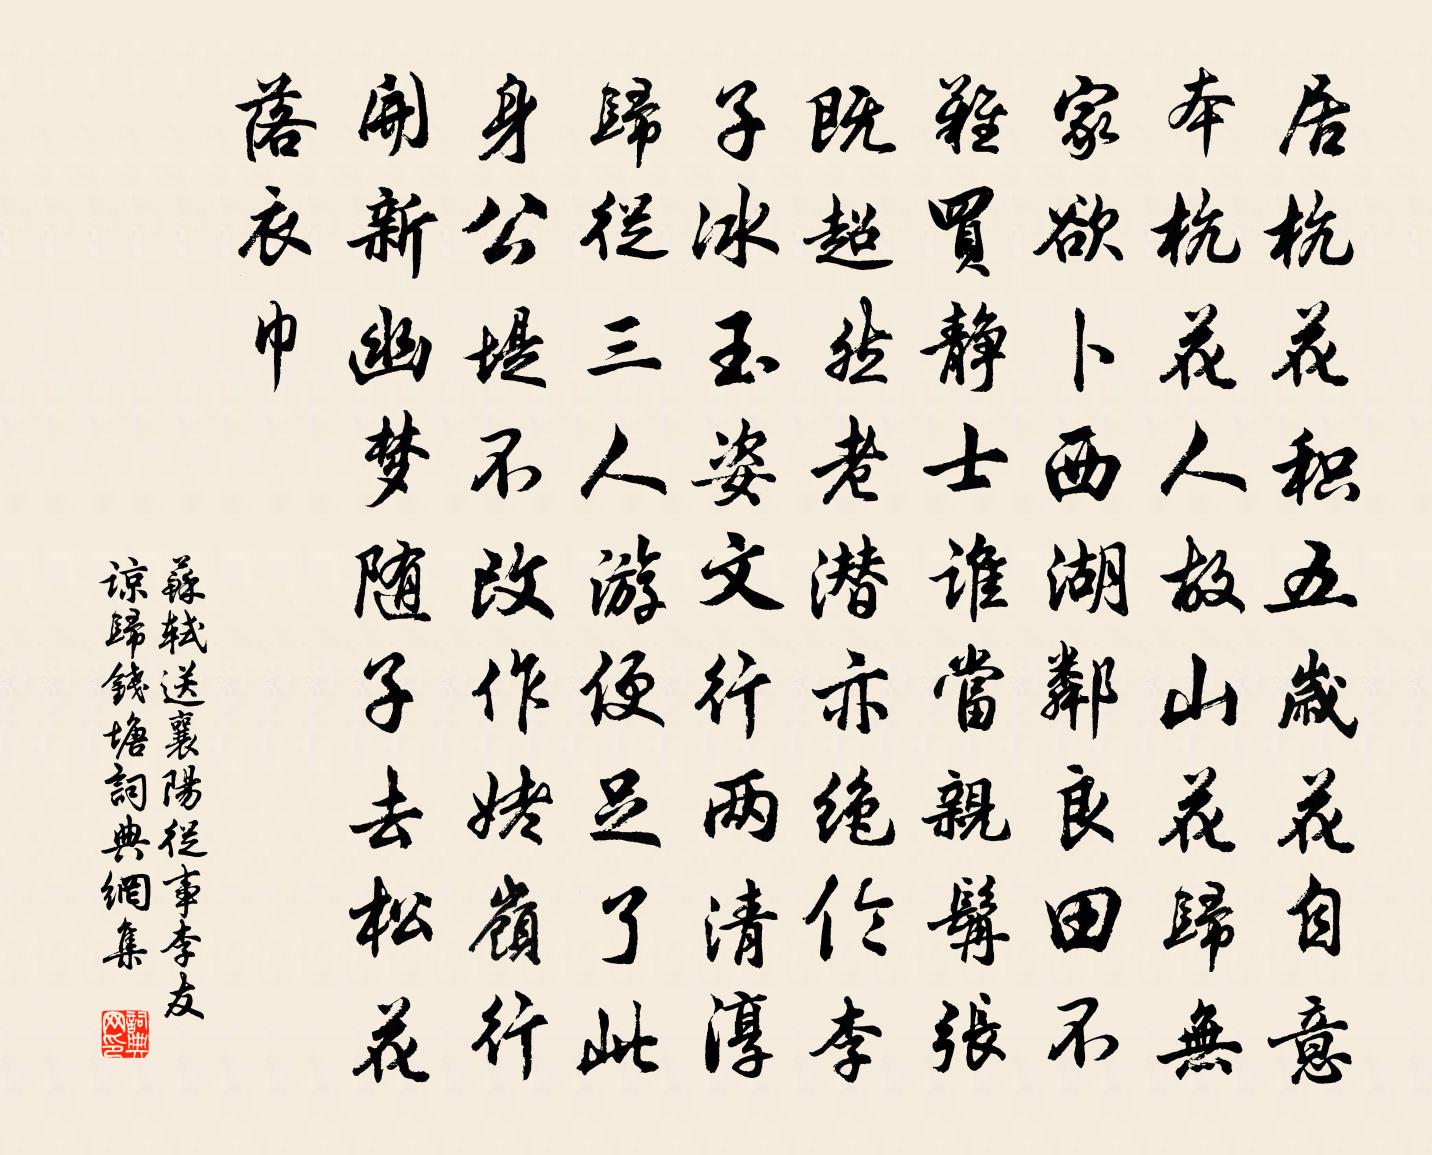 居杭花积五歲花自意
本杭花人故山花歸無
家欲卜西湖鄰良田不
難買靜士誰當親髯張
既超然老潜亦绝伦李
子冰玉姿文行两清淳
歸從三人游便足了此
身公堤不改作姥嶺行
開新幽梦随子去松花
落衣巾
蘇軾送襄陽從事李友
諒歸錢塘詞典網集
詞典网印